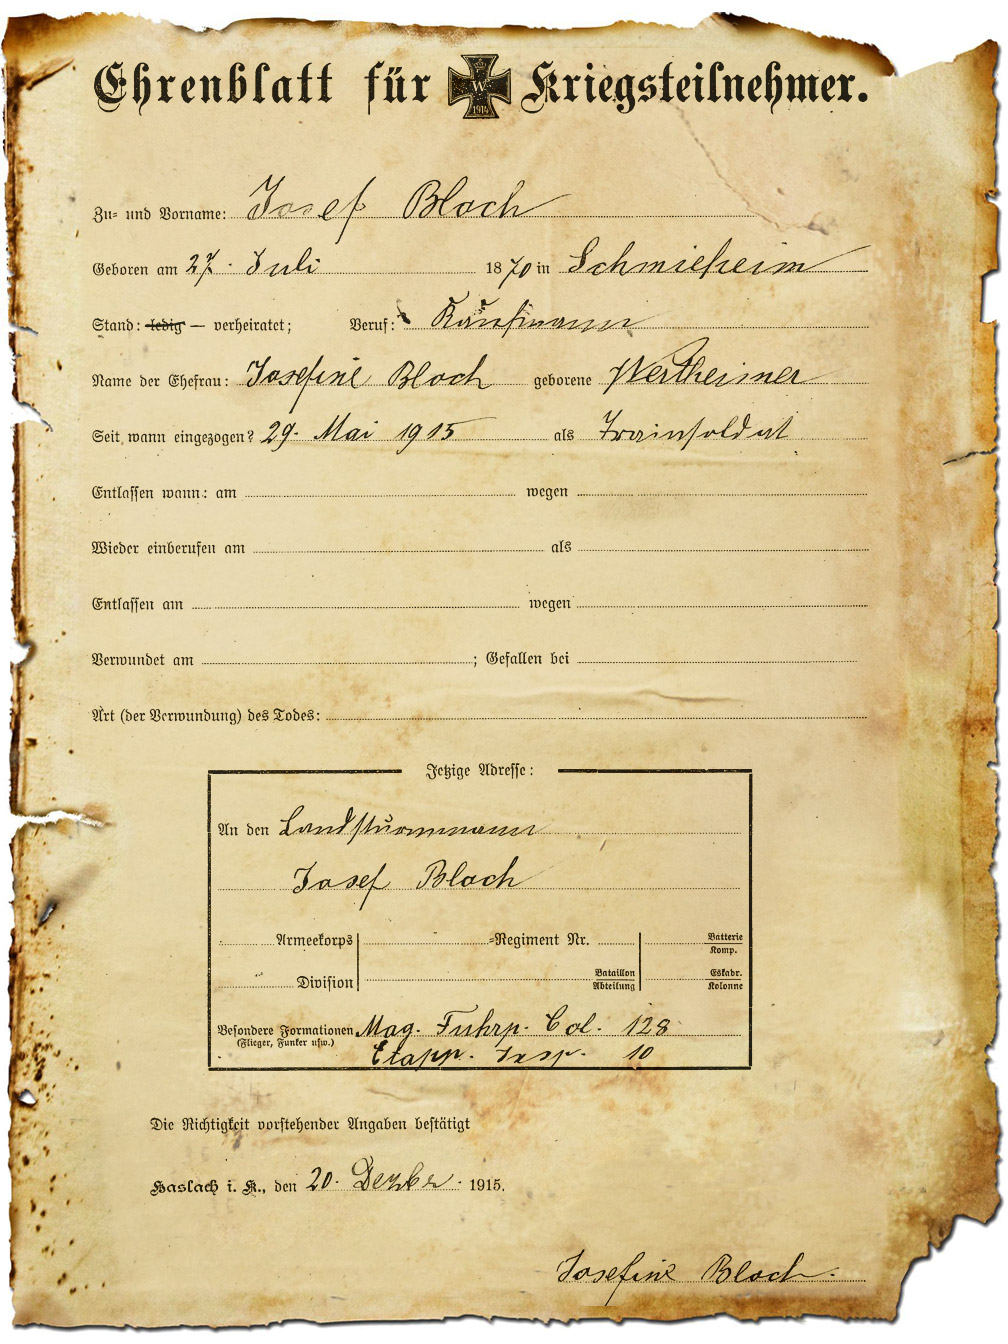 Ehrenblatt für W 1914 Kriegsteilnehmer.
Zu= und Vorname: Josef Bloch
Geboren am 27. Juli 1870 in Schmieheim
Stand: ledig — verheiratet; Beruf: Kaufmann
Name der Ehefrau: Josefine Bloch geborene Wertheimer
Seit wann eingezogen? 29. Mai 1915 als Trainsoldat
Entlassen wann: am wegen
Wieder einberufen am als
Entlassen am wegen
Verwundet am ; Gefallen bei
Art (der Verwundung) des Todes:
Jetzige Adresse:
An den Landsturmmann
Josef Bloch
Armeekorps =Regiment Nr. Batterie
Komp.
Division Bataillon Eskadr.
Abteilung Kolonne
Besondere Formationen Mag. Fuhrp. Col. 128
(Flieger, Funker usw.) Etapp. Insp. 10
Die Richtigkeit vorstehender Angaben bestätigt
Haslach i. K., den 20. Dezbr. 1915.
Josefine Bloch.